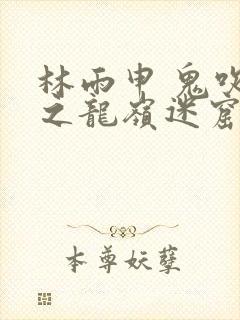 林雨申鬼吹
之龍嶺迷窟
本尊妖孽